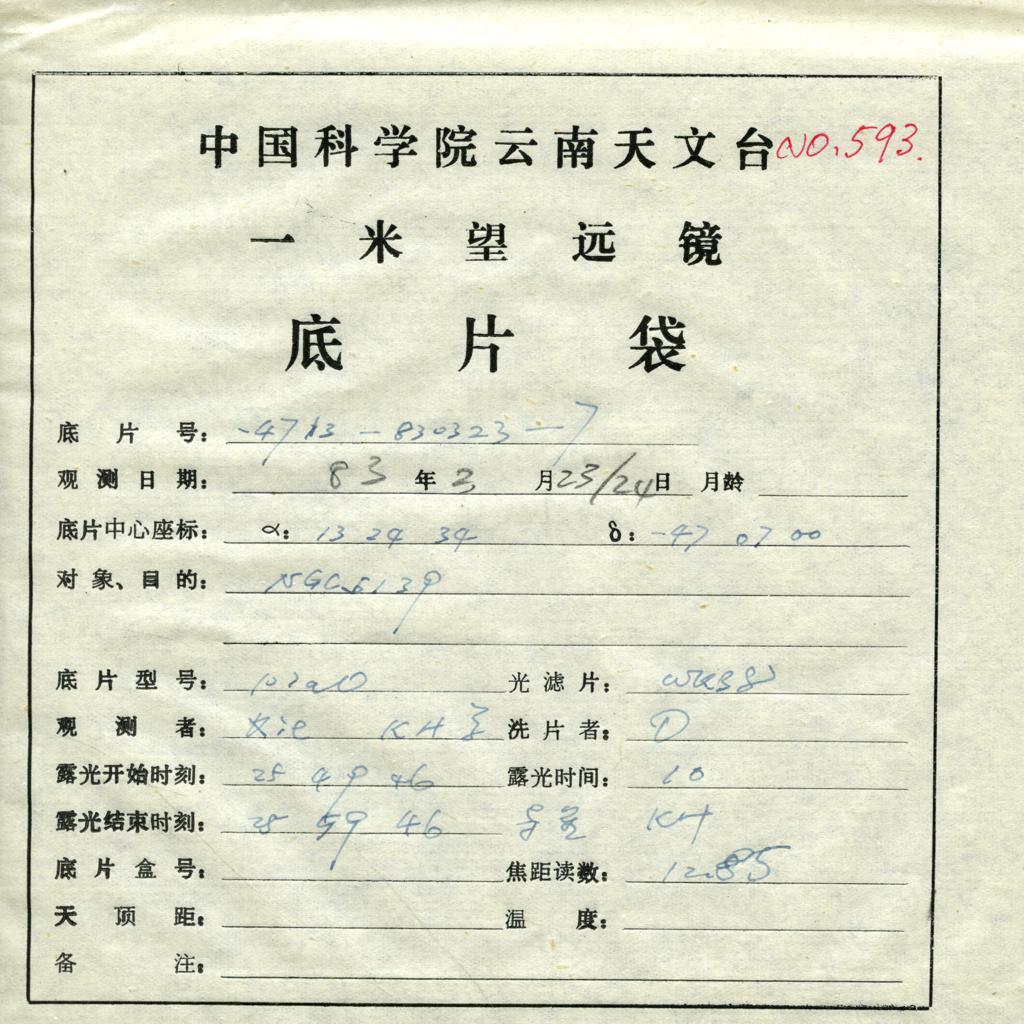 中国科学院云南天文台 NO.593.
一米望远镜
底片袋
底片号: -4713-830323-7
观测日期: 83年3月23/24日 月龄
底片中心座标: α: 13 24 34 δ: -47 07 00
对象、目的: NGC5139
底片型号: 103aO 光滤片:
观测者: Xie KH 洗片者:
露光开始时刻: 25 49 46 露光时间: 10
露光结束时刻: 25 59 46 导星 KH
底片盒号: 焦距读数: 12.85
天顶距: 温度:
备注: